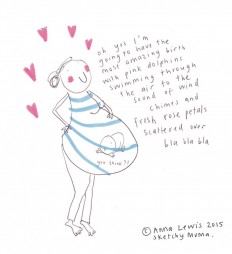 oh yes I'm
going to have the
most amazing birth
with pink dolphins
swimming through
the air to the
sound of wind
chimes and
fresh rose petals
scattered over
bla bla bla
you think?!
© Anna Lewis 2015
Sketchy Muma.